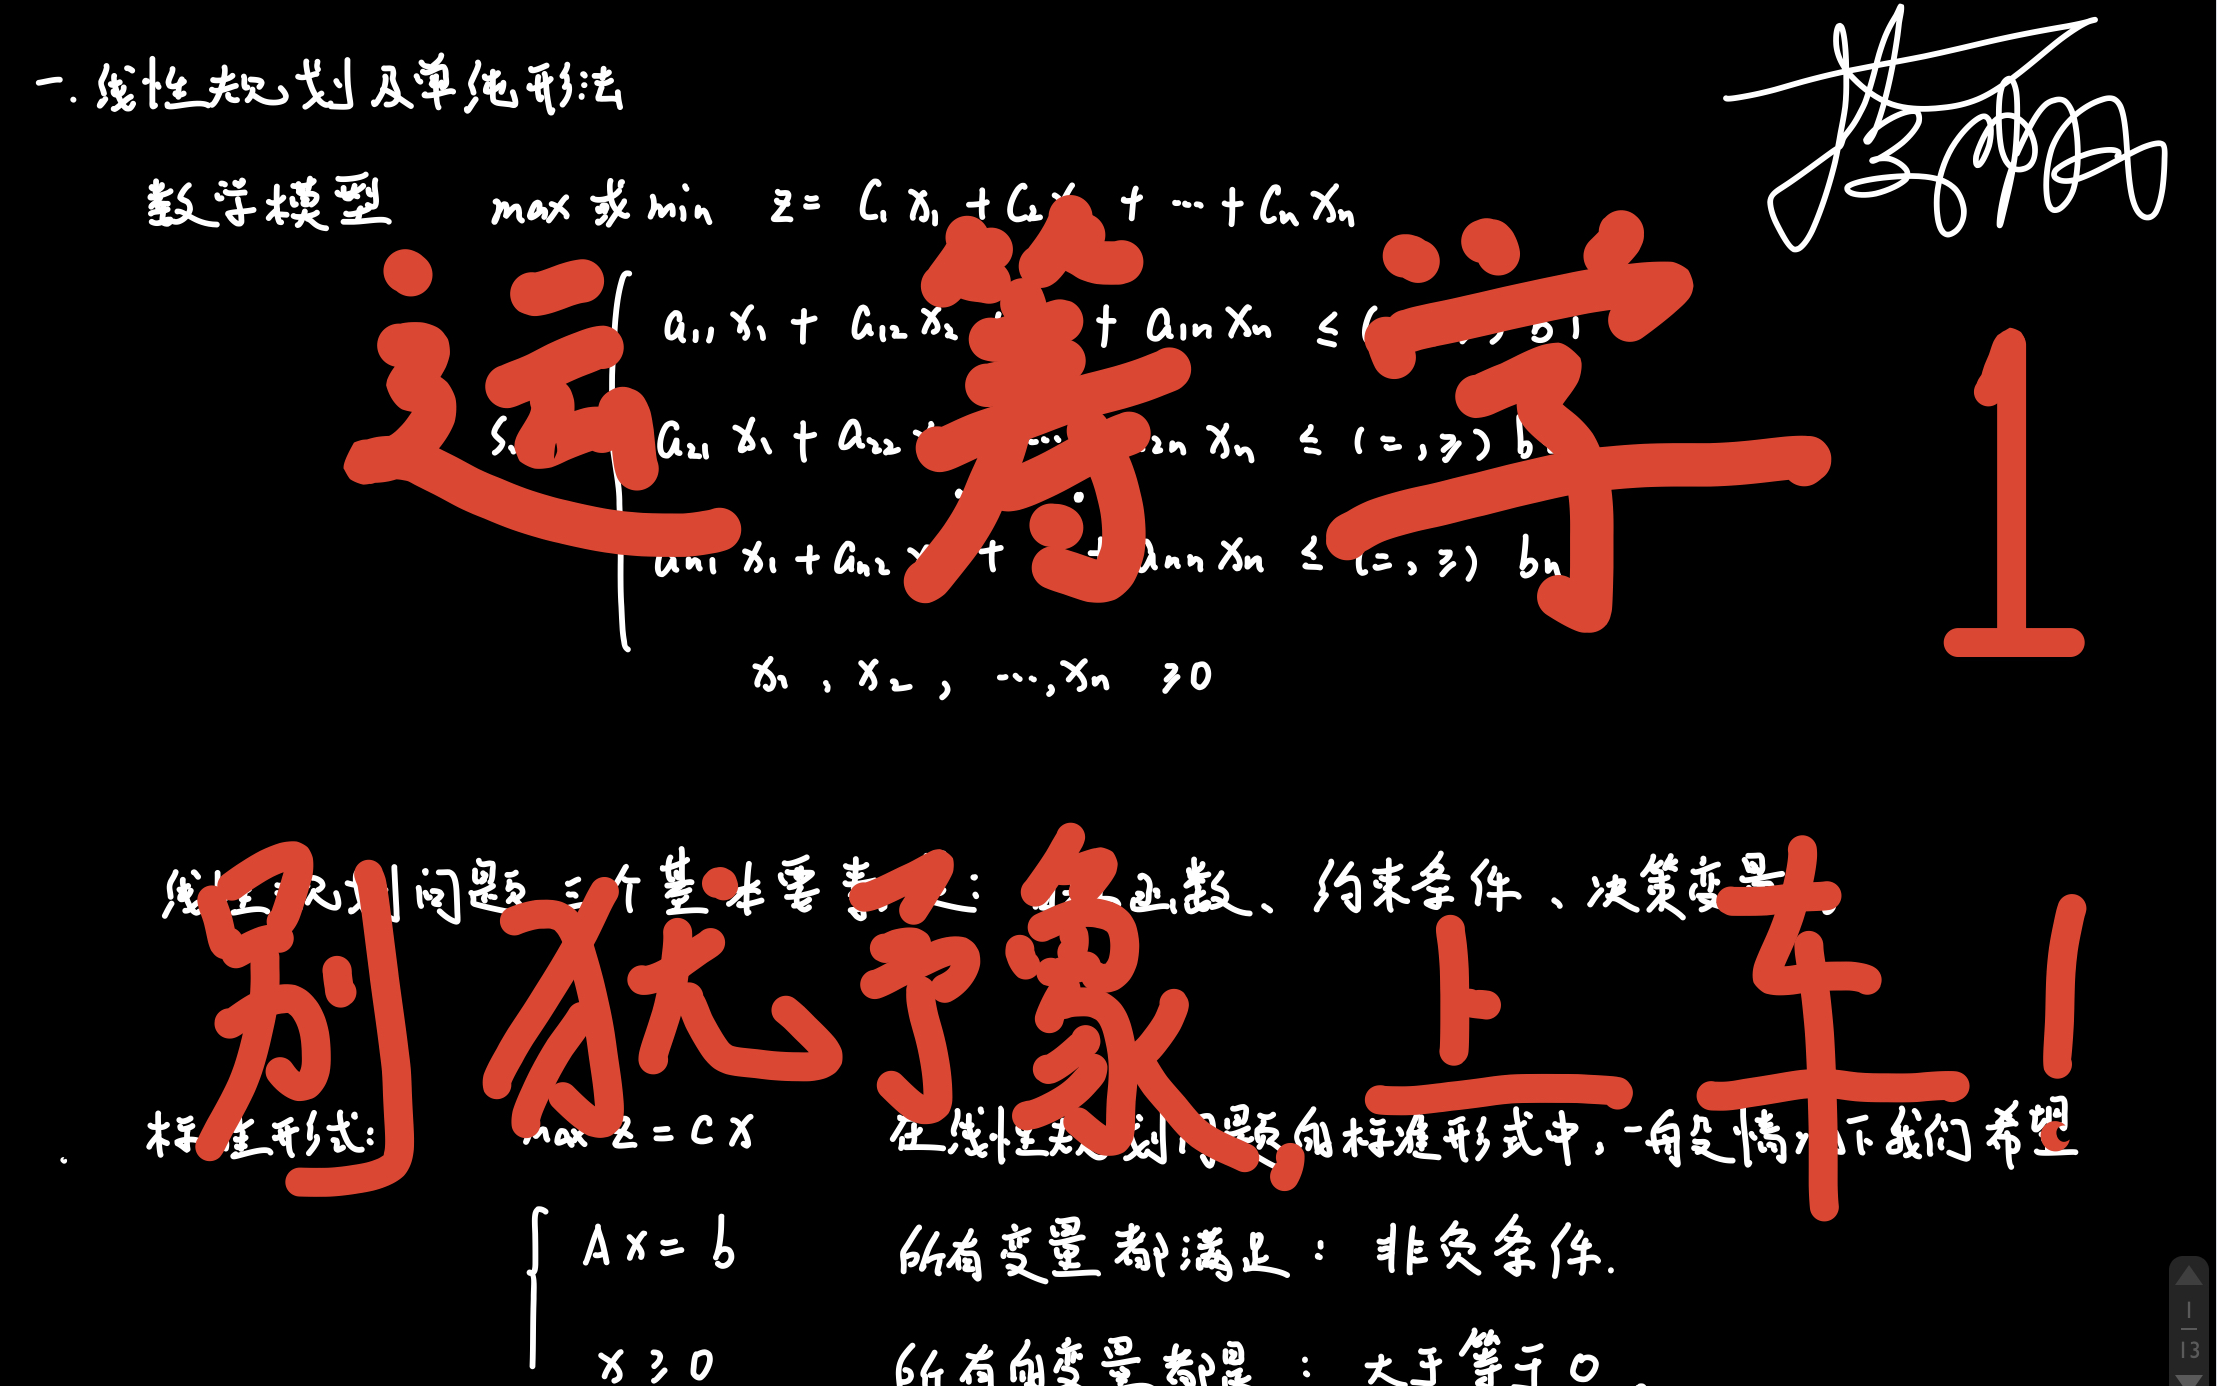 一.线性规划及单纯形法
数学模型 max或min z= C₁x₁+C₂x + ⋯+Cnxn
运筹学1
a₁₁x₁+a₁₂x₂ + a1nxn ≤ b1
a₂₁x₁+a₂₂ ⋯ 2nxn ≤(=,≥) b
an1x₁+an2 + annxn ≤(=,≥) bn
x₁,x₂,⋯,xn ≥0
线性规划问题三个基本要素 : 函数、约束条件、决策变量
别犹予象,上车!
标准形式: max z=CX 在线性规划问题的标准形式中,一般情况下我们希望
AX=b 所有变量都满足:非负条件.
x≥0 所有的变量都是:大于等于0.
1
13